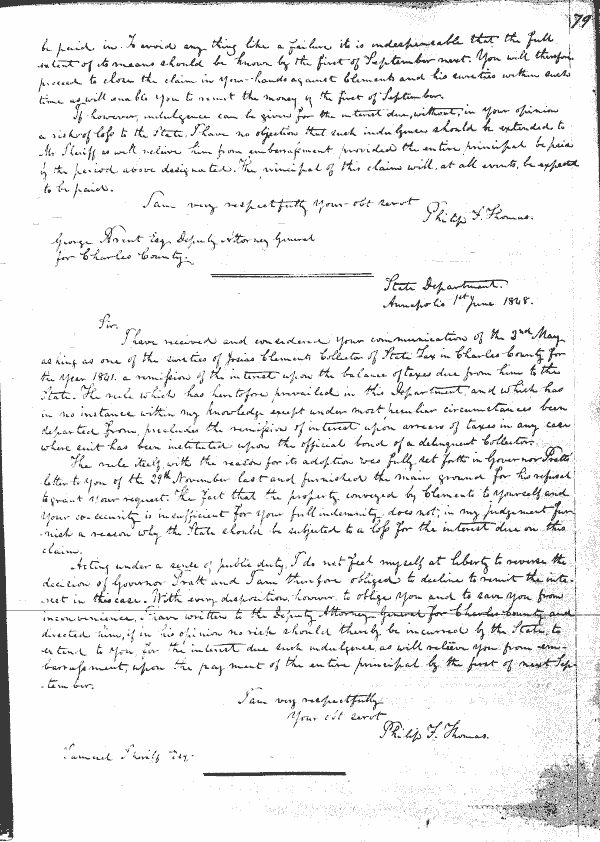 79
be paid in. To avoid any thing like a failure it is indispensable that the full
extent of its means should be known by the first of September next. You will therefore
proceed to close the claim in your hands against Clements and his sureties within such
time as will enable you to remit the money by the first of September.
If however, indulgence can be given for the interest due, without, in your opinion
a risk of loss to the State, I have no objection that such indulgence should be extended to
Mr Sheriff as will relieve him from embarrassment provided the entire principal be paid
by the period above designated. The principal of this claim will, at all events, be expected
to be paid.
I am very respectfully your obt servt
Philip F. Thomas.
George Brent Esq. Deputy Attorney General
for Charles County.
State Department.
Annapolis 1st June 1848.
Sir.
I have received and considered your communication of the 3nd May
asking as one of the sureties of Josias Clements Collector of State Tax in Charles County for
the Year 1841. a remission of the interest upon the balance of taxes due from him to the
State. The rule which has heretofore prevailed in this Department and which has
in no instance within my knowledge except under most peculiar circumstances been
departed from, precludes the remission of interest upon arrears of taxes in any case
where suit has been instituted upon the official bond of a delinquent Collector.
The rule itself, with the reason for its adoption was fully set forth in Governor Pratts
letter to you of the 29th November last and furnished the main ground for his refusal
to grant your request. The fact that the property conveyed by Clements to yourself and
your co-security is insufficient for your full indemnity does not, in my judgement fur
nish a reason why the State should be subjected to a loss for the interest due on this
claim.
Acting under a sense of public duty, I do not feel myself at liberty to reverse the
decision of Governor Pratt and I am therefore obliged to decline to remit the inte-
rest in this case. With every disposition, however to oblige you and to save you from
inconvenience, I have written to the Deputy Attorney General for Charles County and
directed him, if in his opinion no risk should thereby be incurred by the State, to
extend to you, for the interest due such indulgence as will relieve you from em-
barrassment, upon the payment of the entire principal by the first of next Sep-
tember.
I am very respectfully
Your obt servt
Philip F. Thomas.
Samuel Sheriff Esq.